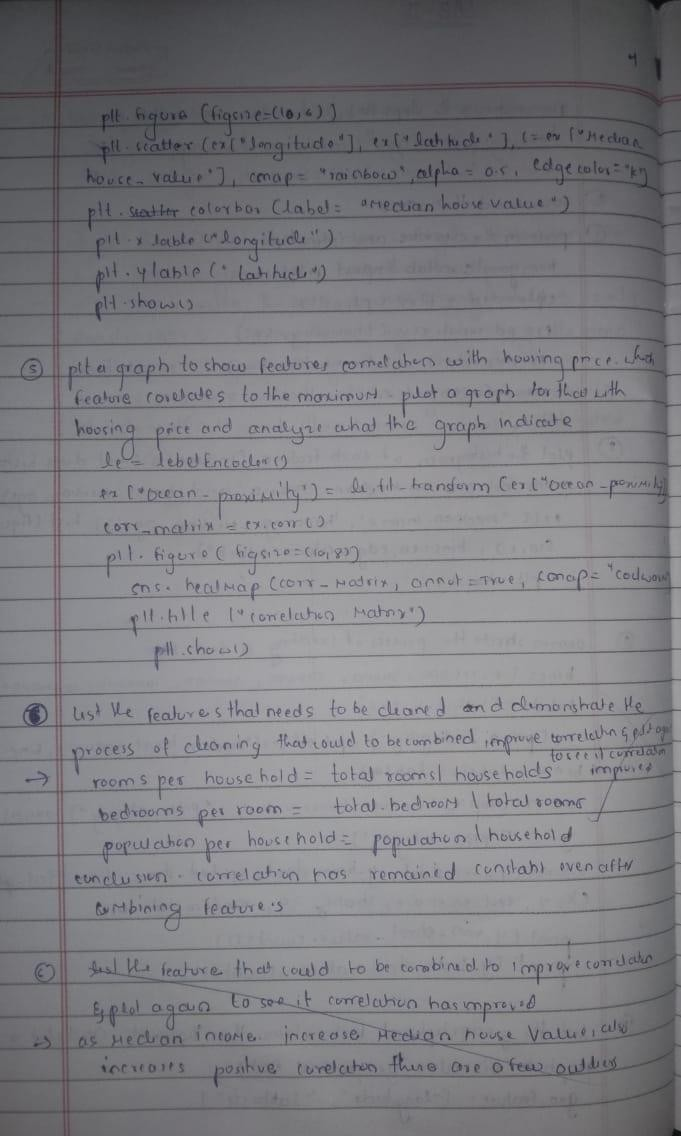 4
plt.figure (figsize=(10,6))
plt.scatter (ex["longitude"], ex["latitude"], c=ex["Median
house_value"], cmap="rainbow", alpha=0.5, edgecolor="k")
plt.scatter colorbar (label= "median house value")
plt.xlable ("longitude")
plt.ylable ("latitude")
plt.show()
5 plt a graph to show features correlation with housing price. which
feature corelates to the maximum plot a graph for that with
hoosing price and analyze what the graph indicate
le = lebelEncoder()
ex ["ocean_proximity") = le.fit-transform (ex["ocean_proximity)
corr_matrix = ex.corr()
plt.figure( figsize=(10,8))
sns.heatmap (corr_matrix, annot=True, cmap=
plt.title ("correlation Matrix")
plt.show()
list the features that needs to be cleaned and demonstrate the
process of cleaning that could to be combined improve correlatn & plot again
to see if correlatn
→ rooms per household = total rooms/ households improved
bedrooms per room = total.bedroom / total rooms
population per household = population / household
conclusion. correlation has remained constant even after
combining features
list the feature that could to be combined to improve correlatn
& plot again to see if correlation has improved
⇒ as Median income increase Median house value, also
increases positive corelation there are a few outliers